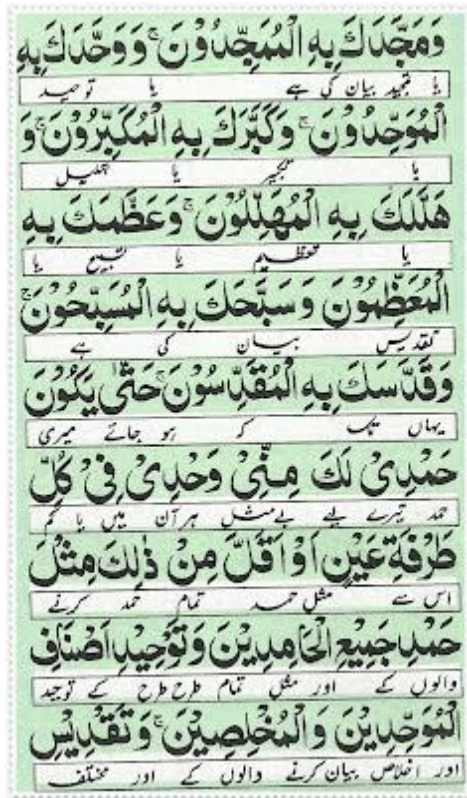 وَمَجَّدَكَ بِهِ الْمُمَجِّدُوْنَ ۚ وَوَحَّدَكَ بِهِ
یا تمجید بیان کی ہے یا توحید
الْمُوَحِّدُوْنَ ۚ وَكَبَّرَكَ بِهِ الْمُكَبِّرُوْنَ ۚ وَ
یا تکبیر یا تہلیل
هَلَّلَكَ بِهِ الْمُهَلِّلُوْنَ ۚ وَعَظَّمَكَ بِهِ
یا تعظیم یا تسبیح یا
الْمُعَظِّمُوْنَ وَسَبَّحَكَ بِهِ الْمُسَبِّحُوْنَ ۚ
تقدیس بیان کی ہے
وَقَدَّسَكَ بِهِ الْمُقَدِّسُوْنَ ۚ حَتّٰى يَكُوْنَ
یہاں تک کہ ہو جائے میری
حَمْدِىْ لَكَ مِنِّىْ وَحْدِىْ فِىْ كُلِّ
حمد تیرے لیے بےمثل ہر آن میں یا کم
طَرْفَةِ عَيْنٍ اَوْ اَقَلَّ مِنْ ذٰلِكَ مِثْلَ
اس سے مثل حمد تمام حمد کرنے
حَمْدِ جَمِيْعِ الْحَامِدِيْنَ وَتَوْحِيْدِ اَصْنَافِ
والوں کے اور مثل تمام طرح طرح کے توحید
الْمُوَحِّدِيْنَ وَالْمُخْلِصِيْنَ ۚ وَتَقْدِيْسِ
اور اخلاص بیان کرنے والوں کے اور مختلف